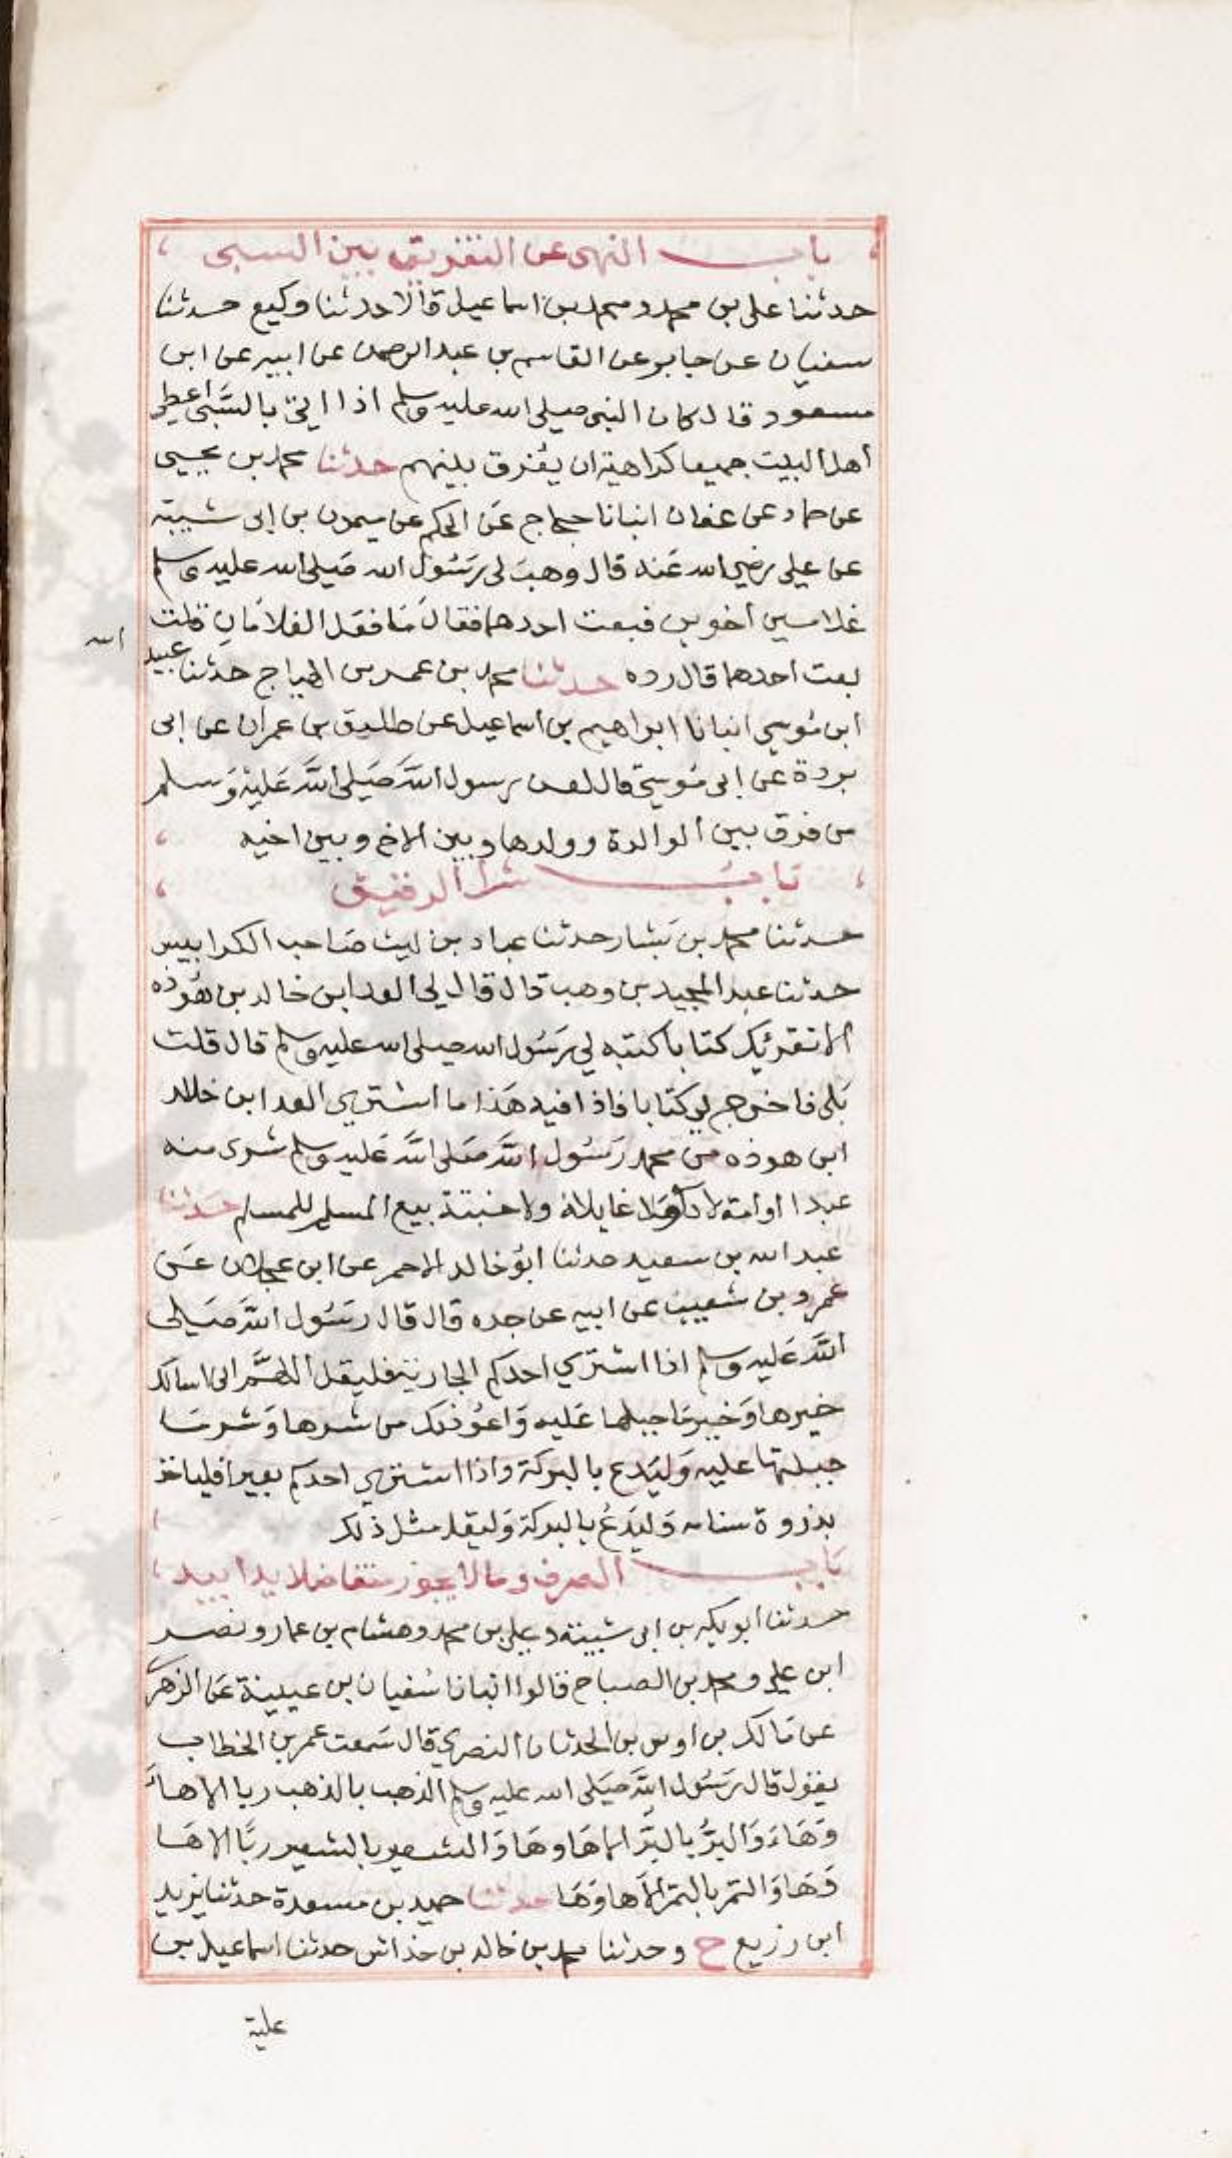 باب النهي عن التفريق بين السبي
حدثنا علي بن محمد ومحمد بن اسماعيل قالا حدثنا وكيع حدثنا
سفيان عن جابر عن القاسم بن عبد الرحمن عن ابيه عن ابن
مسعود قال كان النبي صلى الله عليه وسلم اذا اتي بالسَّبي اعطى
أهل البيت جميعا كراهية ان يُفرق بينهم حدثنا محمد بن يحيى
عن حماد عن عفان انبانا حجاج عَن الحكم عن ميمون بن ابى شبيبة
عن علي رضي الله عَنه قال وهبَ لي رَسُول الله صَلى الله عليه وسلم
غلامين أخوين فبعت احدهما فقالَ مَا فعَل الغلامَانِ قلت
بعت احدهما قال رده حدثنا محمد بن عمر بن الهياج حدثنا عبيد
الله
ابن مُوسي انبانا ابراهيم بن اسماعيل عن طليق بن عمران عن ابى
بردة عن ابى مُوسي قال لعن رسول اللَّه صَلى اللَّه عَليْه وَسلم
من فرق بين الوالدة وولدها وبين الاخ وبين اخيه
بَابُ شرا الرقيق
حدثنا محمد بن بَشار حدثنا عباد بن ليث صَاحب الكرابيس
حدثنا عبد المجيد بن وهب قال قال لي العدا بن خالد بن هُوذه
الا نقرئك كتابا كتبه لي رَسُول الله صلى الله عليه وسلم قال قلت
بَلى فاخرج لي كتابا فاذا فيه هَذا ما اشتري العدا بن خالد
ابن هوذه من محمد رَسُول اللَّه صَلى اللَّه عَليه وسلم شرى منه
عبدا او امة لا دآ ولا غايلة ولا خبثة بيع المسلم للمسلم حَدثنا
عبد الله بن سعيد حدثنا ابُو خالد الاحمر عن ابن عجلان عَن
عمرو بن شعيب عن ابيه عن جده قال قال رسُول اللَّه صَلى
اللَّه عَليه وسلم اذا اشتري احدكم الجارية فليقل اللهمَّ اني اسالك
خيرها وَخير مَا جبلها عَليه وَاعوُذ بك من شرها وَشر مَا
جبلتها عليه وَليَدع بالبركة واذا اشتري احدكم بعيرا فلياخذ
بذروة سنامه وَليَدعُ بالبركة وَليقل مثل ذلك
بَاب الصرف وما لا يجوز متفاضلا يدا بيد
حدثنا ابو بكر بن ابي شيبة وعلي بن محمد وهشام بن عمار ونصر
ابن علي ومحمد بن الصباح قالوا انبانا سُفيان بن عيينة عَن الزهري
عن مَالك بن اوس بن الحدثان النصري قال سَمعت عمر بن الخطاب
يقول قال رَسُول اللَّه صَلى الله عليه وسلم الذهب بالذهب ربا الا هاءَ
وَهَاءَ وَالبرُّ بالبرِّ الا هَا وهَا وَالشعير بالشعير ربًا الا هَا
وَهَا وَالتمر بالتمر الا هَا وَهَا حدثنا حميد بن مسعدة حدثنا يزيد
ابن زريع ح وحدثنا محمد بن خالد بن خداش حدثنا اسماعيل بن
علية